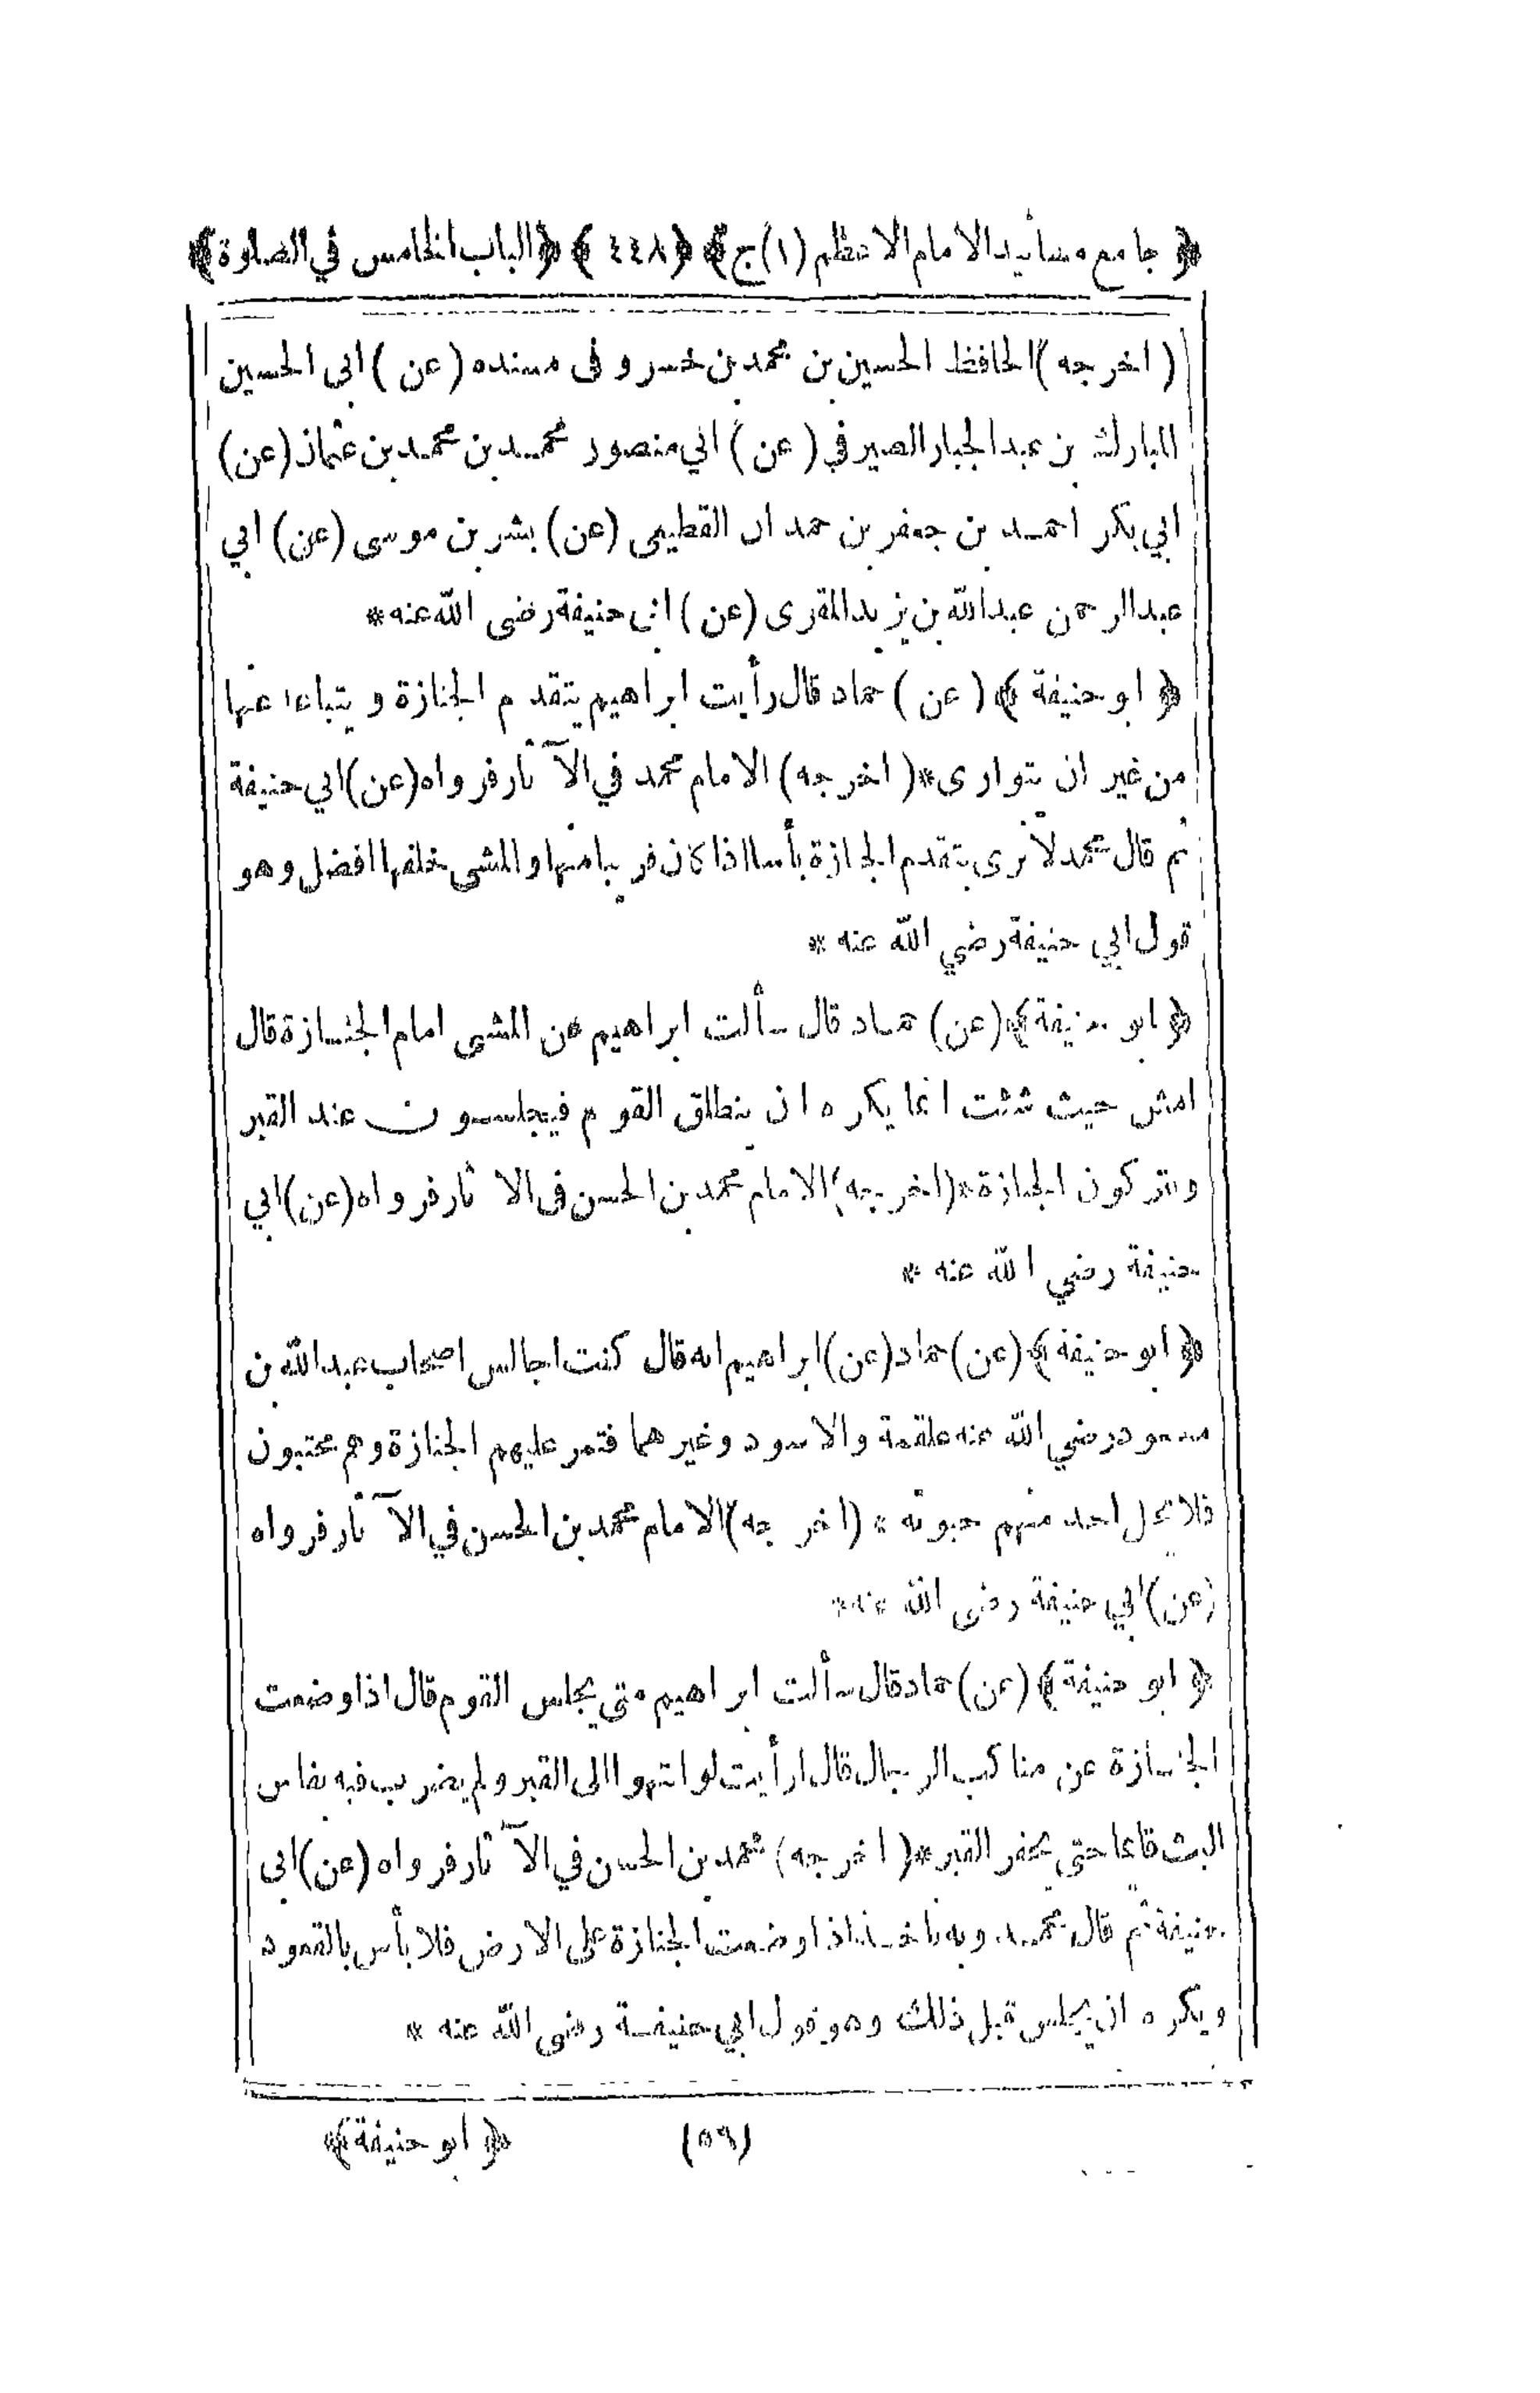 ﴿ جامع مسانيد الامام الاعظم (١) ج ﴾ ﴿ ٤٤٨ ﴾ ﴿ الباب الخامس في الصلوة ﴾
( اخرجه ) الحافظ الحسين بن محمد بن خسرو فى مسنده ( عن ) ابى الحسين
المبارك بن عبد الجبار الصيرفي ( عن ) ابي منصور محمد بن محمد بن عثمان (عن)
ابي بكر احمد بن جعفر بن حمدان القطيعى (عن) بشر بن موسى (عن) ابي
عبد الرحمن عبد الله بن يزيد المقرى (عن) ابى حنيفة رضى الله عنه *
﴿ ابو حنيفة ﴾ ( عن ) حماد قال رأيت ابراهيم يتقدم الجنازة و يتباعد عنها
من غير ان يتوارى * ( اخرجه ) الامام محمد في الآثار فرواه (عن) ابي حنيفة
ثم قال محمد لا نرى بتقدم الجنازة بأسا اذا كان قريبا منها والمشى خلفها افضل وهو
قول ابي حنيفة رضي الله عنه *
﴿ ابو حنيفة ﴾ (عن) حماد قال سألت ابراهيم عن المشى امام الجنازة قال
امش حيث شئت انما يكره ان ينطلق القوم فيجلسون عند القبر
ويتركون الجنازة * (اخرجه) الامام محمد بن الحسن فى الاثار فرواه (عن) ابي
حنيفة رضي الله عنه *
﴿ ابو حنيفة ﴾ (عن) حماد (عن) ابراهيم انه قال كنت اجالس اصحاب عبد الله بن
مسعود رضي الله عنه علقمة والاسود وغيرهما فتمر عليهم الجنازة وهم محتبون
فلا يحل احد منهم حبوته * (اخرجه) الامام محمد بن الحسن في الآثار فرواه
(عن) ابي حنيفة رضى الله عنه *
﴿ ابو حنيفة ﴾ (عن) حماد قال سألت ابراهيم متى يجلس القوم قال اذا وضعت
الجنازة عن مناكب الرجال قال ارأيت لو انتهوا الى القبر ولم يضرب فيه بفاس
البث قائما حتى يحفر القبر * ( اخرجه ) محمد بن الحسن في الآثار فرواه (عن) ابى
حنيفة ثم قال محمد وبه ناخذ اذا وضعت الجنازة على الارض فلا بأس بالقعود
ويكره ان يجلس قبل ذلك وهو قول ابي حنيفة رضى الله عنه *
(٥٦) ﴿ ابو حنيفة ﴾